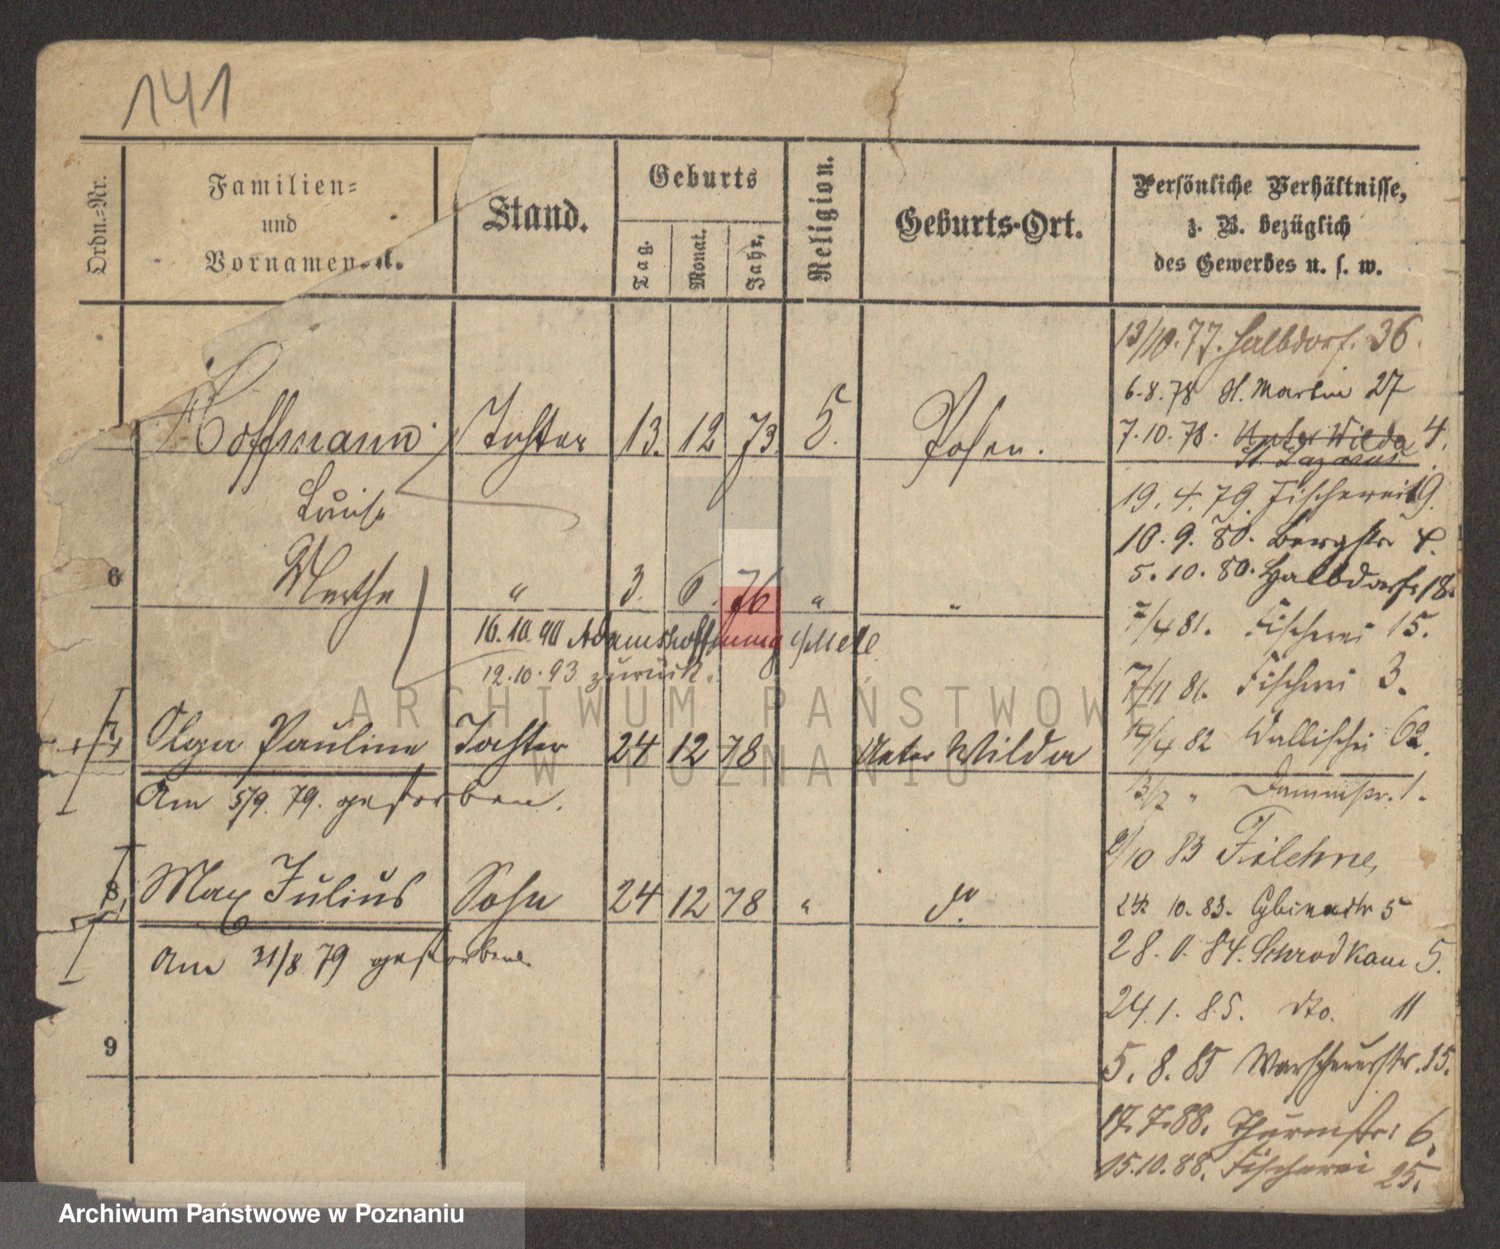 141
Ordn.-Nr.
Familien-
und
Vornamen
Stand.
Geburts
Tag.
Monat.
Jahr.
Religion.
Geburts-Ort.
Persönliche Verhältnisse,
z. B. bezüglich
des Gewerbes u. s. w.
13/10.77. Halbdorf. 36.
6.8.78 St. Martin 27
Hoffmann Tochter 13. 12 73. Posen.
7.10.78. Unter Wilda 4.
St. Lazarus
Luise
19. 4. 79. Fischerei 19.
10. 9. 80. Bergstr
6 Marthe " 3. 6. 76 " "
5. 10. 80. Halbdorfs 18.
16.10.90 Adamshoffnung
7/4 81. Fischerei 15.
12.10.93 zurück.
7/11 81. Fischerei 3.
7 Olga Pauline Tochter 24 12 78 Unter Wilda
14/4 82 Wallischei 62.
Am 5/9. 79. gestorben.
Dammstr. 1.
9/10 83 Filehne,
8 Max Julius Sohn 24 12 78 " do.
10. 83. Cybinastr 5
Am 31/8 79 gestorben.
84. Schrodkam 5.
24. 1. 85. dto. 11
9
5. 8. 85 15.
17.7.88. Thurmstr. 6.
15.10.88. Fischerei 25.
ARCHIWUM PAŃSTWOWE
W POZNANIU
Archiwum Państwowe w Poznaniu